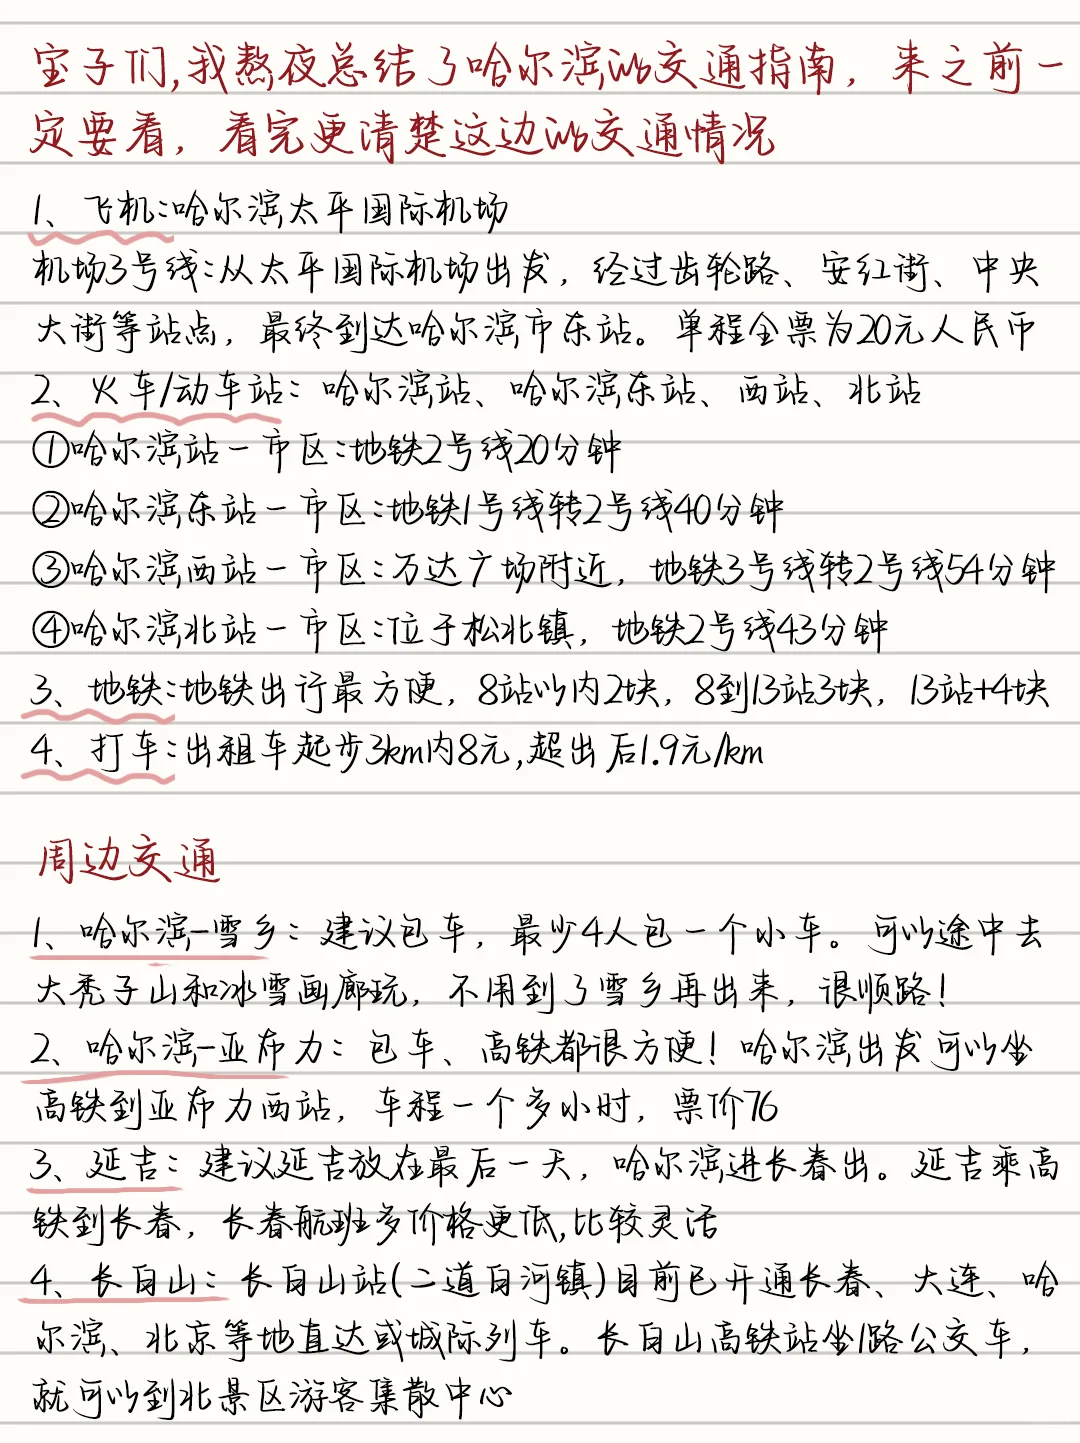 宝子们,我熬夜总结了哈尔滨的交通指南，来之前一
定要看，看完更清楚这边的交通情况
1、飞机:哈尔滨太平国际机场
机场3号线:从太平国际机场出发，经过齿轮路、安红街、中央
大街等站点，最终到达哈尔滨市东站。单程全票为20元人民币
2、火车/动车站：哈尔滨站、哈尔滨东站、西站、北站
①哈尔滨站－市区:地铁2号线20分钟
②哈尔滨东站－市区:地铁1号线转2号线40分钟
③哈尔滨西站－市区:万达广场附近，地铁3号线转2号线54分钟
④哈尔滨北站－市区:位于松北镇，地铁2号线43分钟
3、地铁:地铁出行最方便，8站以内2块，8到13站3块，13站+4块
4、打车:出租车起步3km内8元,超出后1.9元/km
周边交通
1、哈尔滨-雪乡：建议包车，最少4人包一个小车。可以途中去
大秃子山和冰雪画廊玩，不用到了雪乡再出来，很顺路！
2、哈尔滨-亚布力：包车、高铁都很方便！哈尔滨出发可以坐
高铁到亚布力西站，车程一个多小时，票价76
3、延吉：建议延吉放在最后一天，哈尔滨进长春出。延吉乘高
铁到长春，长春航班多价格更低,比较灵活
4、长白山：长白山站(二道白河镇)目前已开通长春、大连、哈
尔滨、北京等地直达或城际列车。长白山高铁站坐1路公交车，
就可以到北景区游客集散中心